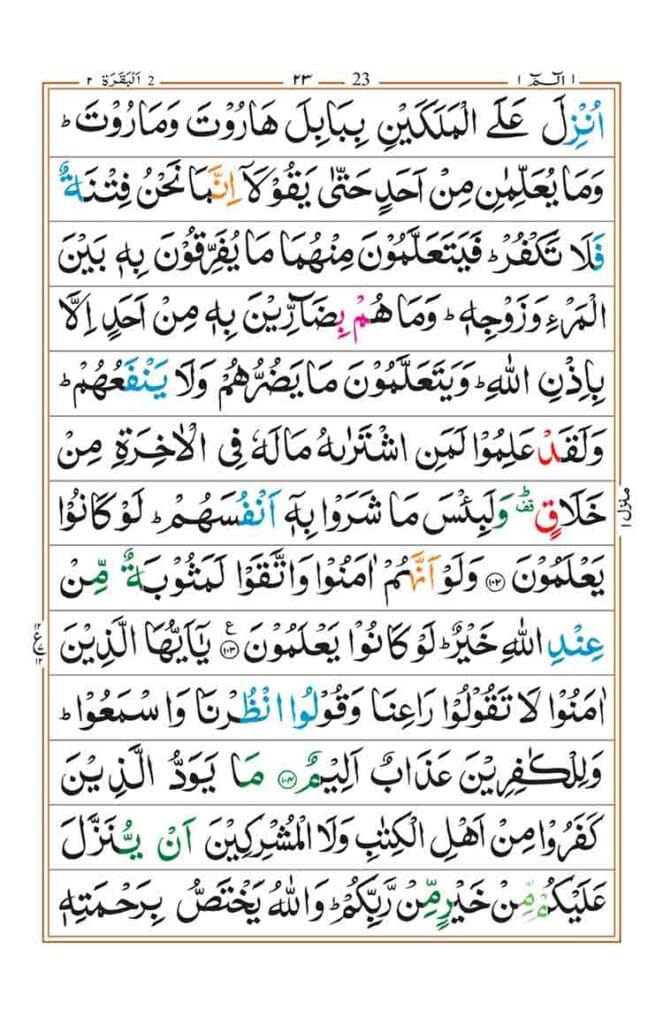 الٓمّٓ ١ ٢٣ 23 2 اَلْبَقَرَة ٢
اُنْزِلَ عَلَى الْمَلَكَيْنِ بِبَابِلَ هَارُوْتَ وَمَارُوْتَ ؕ
وَمَا يُعَلِّمٰنِ مِنْ اَحَدٍ حَتّٰى يَقُوْلَاۤ اِنَّمَا نَحْنُ فِتْنَةٌ
فَلَا تَكْفُرْ ؕ فَيَتَعَلَّمُوْنَ مِنْهُمَا مَا يُفَرِّقُوْنَ بِهٖ بَيْنَ
الْمَرْءِ وَزَوْجِهٖ ؕ وَمَا هُمْ بِضَآرِّيْنَ بِهٖ مِنْ اَحَدٍ اِلَّا
بِاِذْنِ اللّٰهِ ؕ وَيَتَعَلَّمُوْنَ مَا يَضُرُّهُمْ وَلَا يَنْفَعُهُمْ ؕ
وَلَقَدْ عَلِمُوْا لَمَنِ اشْتَرٰىهُ مَا لَهٗ فِى الْاٰخِرَةِ مِنْ
خَلَاقٍ ؕ قف وَلَبِئْسَ مَا شَرَوْا بِهٖۤ اَنْفُسَهُمْ ؕ لَوْ كَانُوْا
يَعْلَمُوْنَ ﴿۱۰۲﴾ وَلَوْ اَنَّهُمْ اٰمَنُوْا وَاتَّقَوْا لَمَثُوْبَةٌ مِّنْ
عِنْدِ اللّٰهِ خَيْرٌ ؕ لَوْ كَانُوْا يَعْلَمُوْنَ ﴿۱۰۳﴾ ع يٰۤاَيُّهَا الَّذِيْنَ
اٰمَنُوْا لَا تَقُوْلُوْا رَاعِنَا وَقُوْلُوا انْظُرْنَا وَاسْمَعُوْا ؕ
وَلِلْكٰفِرِيْنَ عَذَابٌ اَلِيْمٌ ﴿۱۰۴﴾ مَا يَوَدُّ الَّذِيْنَ
كَفَرُوْا مِنْ اَهْلِ الْكِتٰبِ وَلَا الْمُشْرِكِيْنَ اَنْ يُّنَزَّلَ
عَلَيْكُمْ مِّنْ خَيْرٍ مِّنْ رَّبِّكُمْ ؕ وَاللّٰهُ يَخْتَصُّ بِرَحْمَتِهٖ
منزل ١